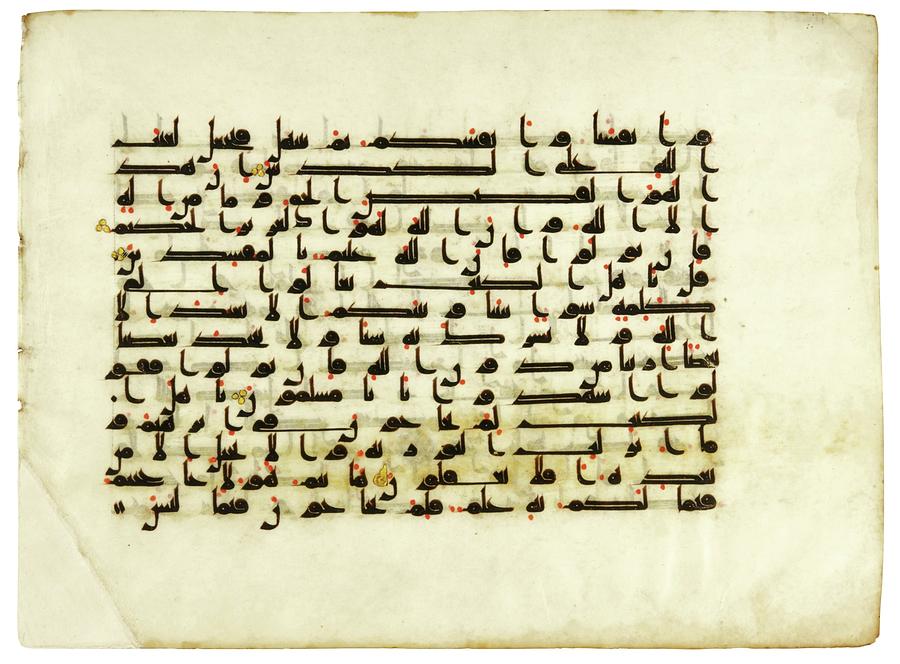 وانفسنا وانفسكم ثم نبتهل فنجعل لعنت
الله على الكذبين ان هذ
ا لهو القصص الحق وما من اله
الا الله وان الله لهو العزيز الحكيم
فان تولوا فان الله عليم بالمفسدين
قل ياهل الكتب تعالوا الى
كلمة سوا بيننا وبينكم الا نعبد الا
الله ولا نشرك به شيا ولا يتخذ بعضنا
بعضا اربابا من دون الله فان تولوا فقو
لوا اشهدوا بانا مسلمون ياهل ا
لكتب لم تحاجون في ابرهيم و
ما انزلت التورية والانجيل الا من
بعده افلا تعقلون هانتم هولا حججتم
فيما لكم به علم فلم تحاجون فيما ليس